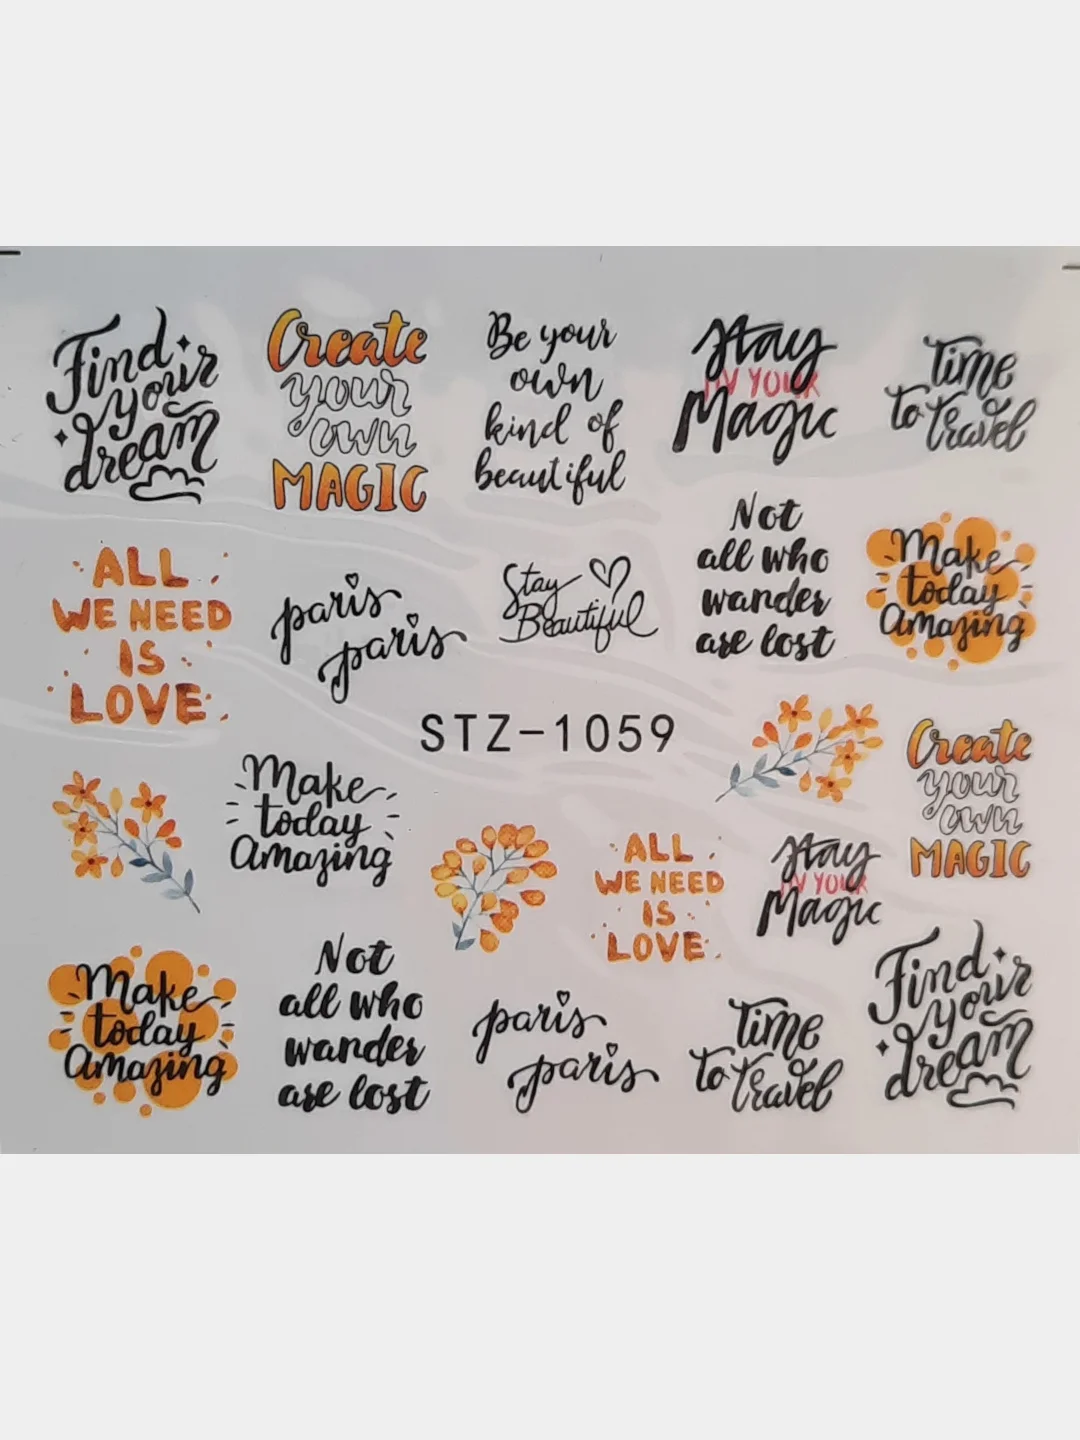 Find
your
dream
Create
your
own
MAGIC
Be your
own
kind of
beautiful
Stay
IN YOUR
Magic
Time
to travel
ALL
WE NEED
IS
LOVE
paris
paris
Stay
Beautiful
Not
all who
wander
are lost
Make
today
Amazing
STZ-1059
Make
today
Amazing
ALL
WE NEED
IS
LOVE
Stay
IN YOUR
Magic
Create
your
own
MAGIC
Make
today
Amazing
Not
all who
wander
are lost
paris
paris
Time
to travel
Find
your
dream